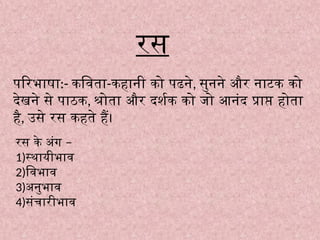 रस
परिभाषा:- कविता-कहानी को पढने, सुनने और नाटक को
देखने से पाठक, श्रोता और दर्शक को जो आनंद प्राप्त होता
है, उसे रस कहते हैं।
रस के अंग –
1)स्थायीभाव
2)विभाव
3)अनुभाव
4)संचारीभाव